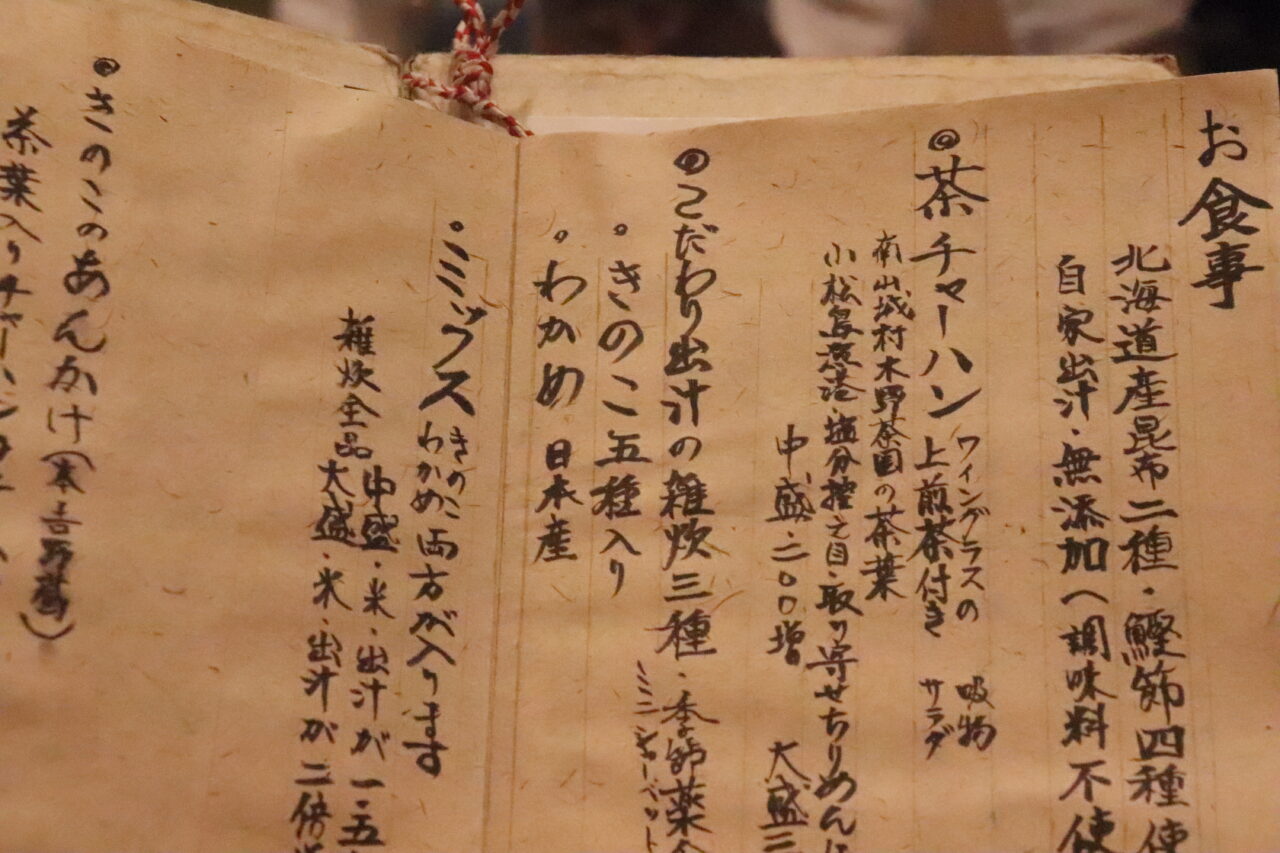 お食事
北海道産昆布二種・鰹節四種使
自家出汁・無添加へ調味料不使
◎茶チャーハン
ワイングラスの
上煎茶付き
吸物
サラダ
南山城村木野茶園の茶葉
小松島漁港・塩分控え目・取り寄せちりめんに
中盛・二〇〇増 大盛三
◎こだわり出汁の雑炊三種・季節薬
ミニシャーベット
。きのこ五種入り
。わかめ 日本産
。ミックス
きのこ
わかめ両方が入ります
雑炊全品
中盛・米・出汁が一・五
大盛・米・出汁が二倍
◎きのこのあんかけ(本吉野葛)
茶葉入りチャーハン